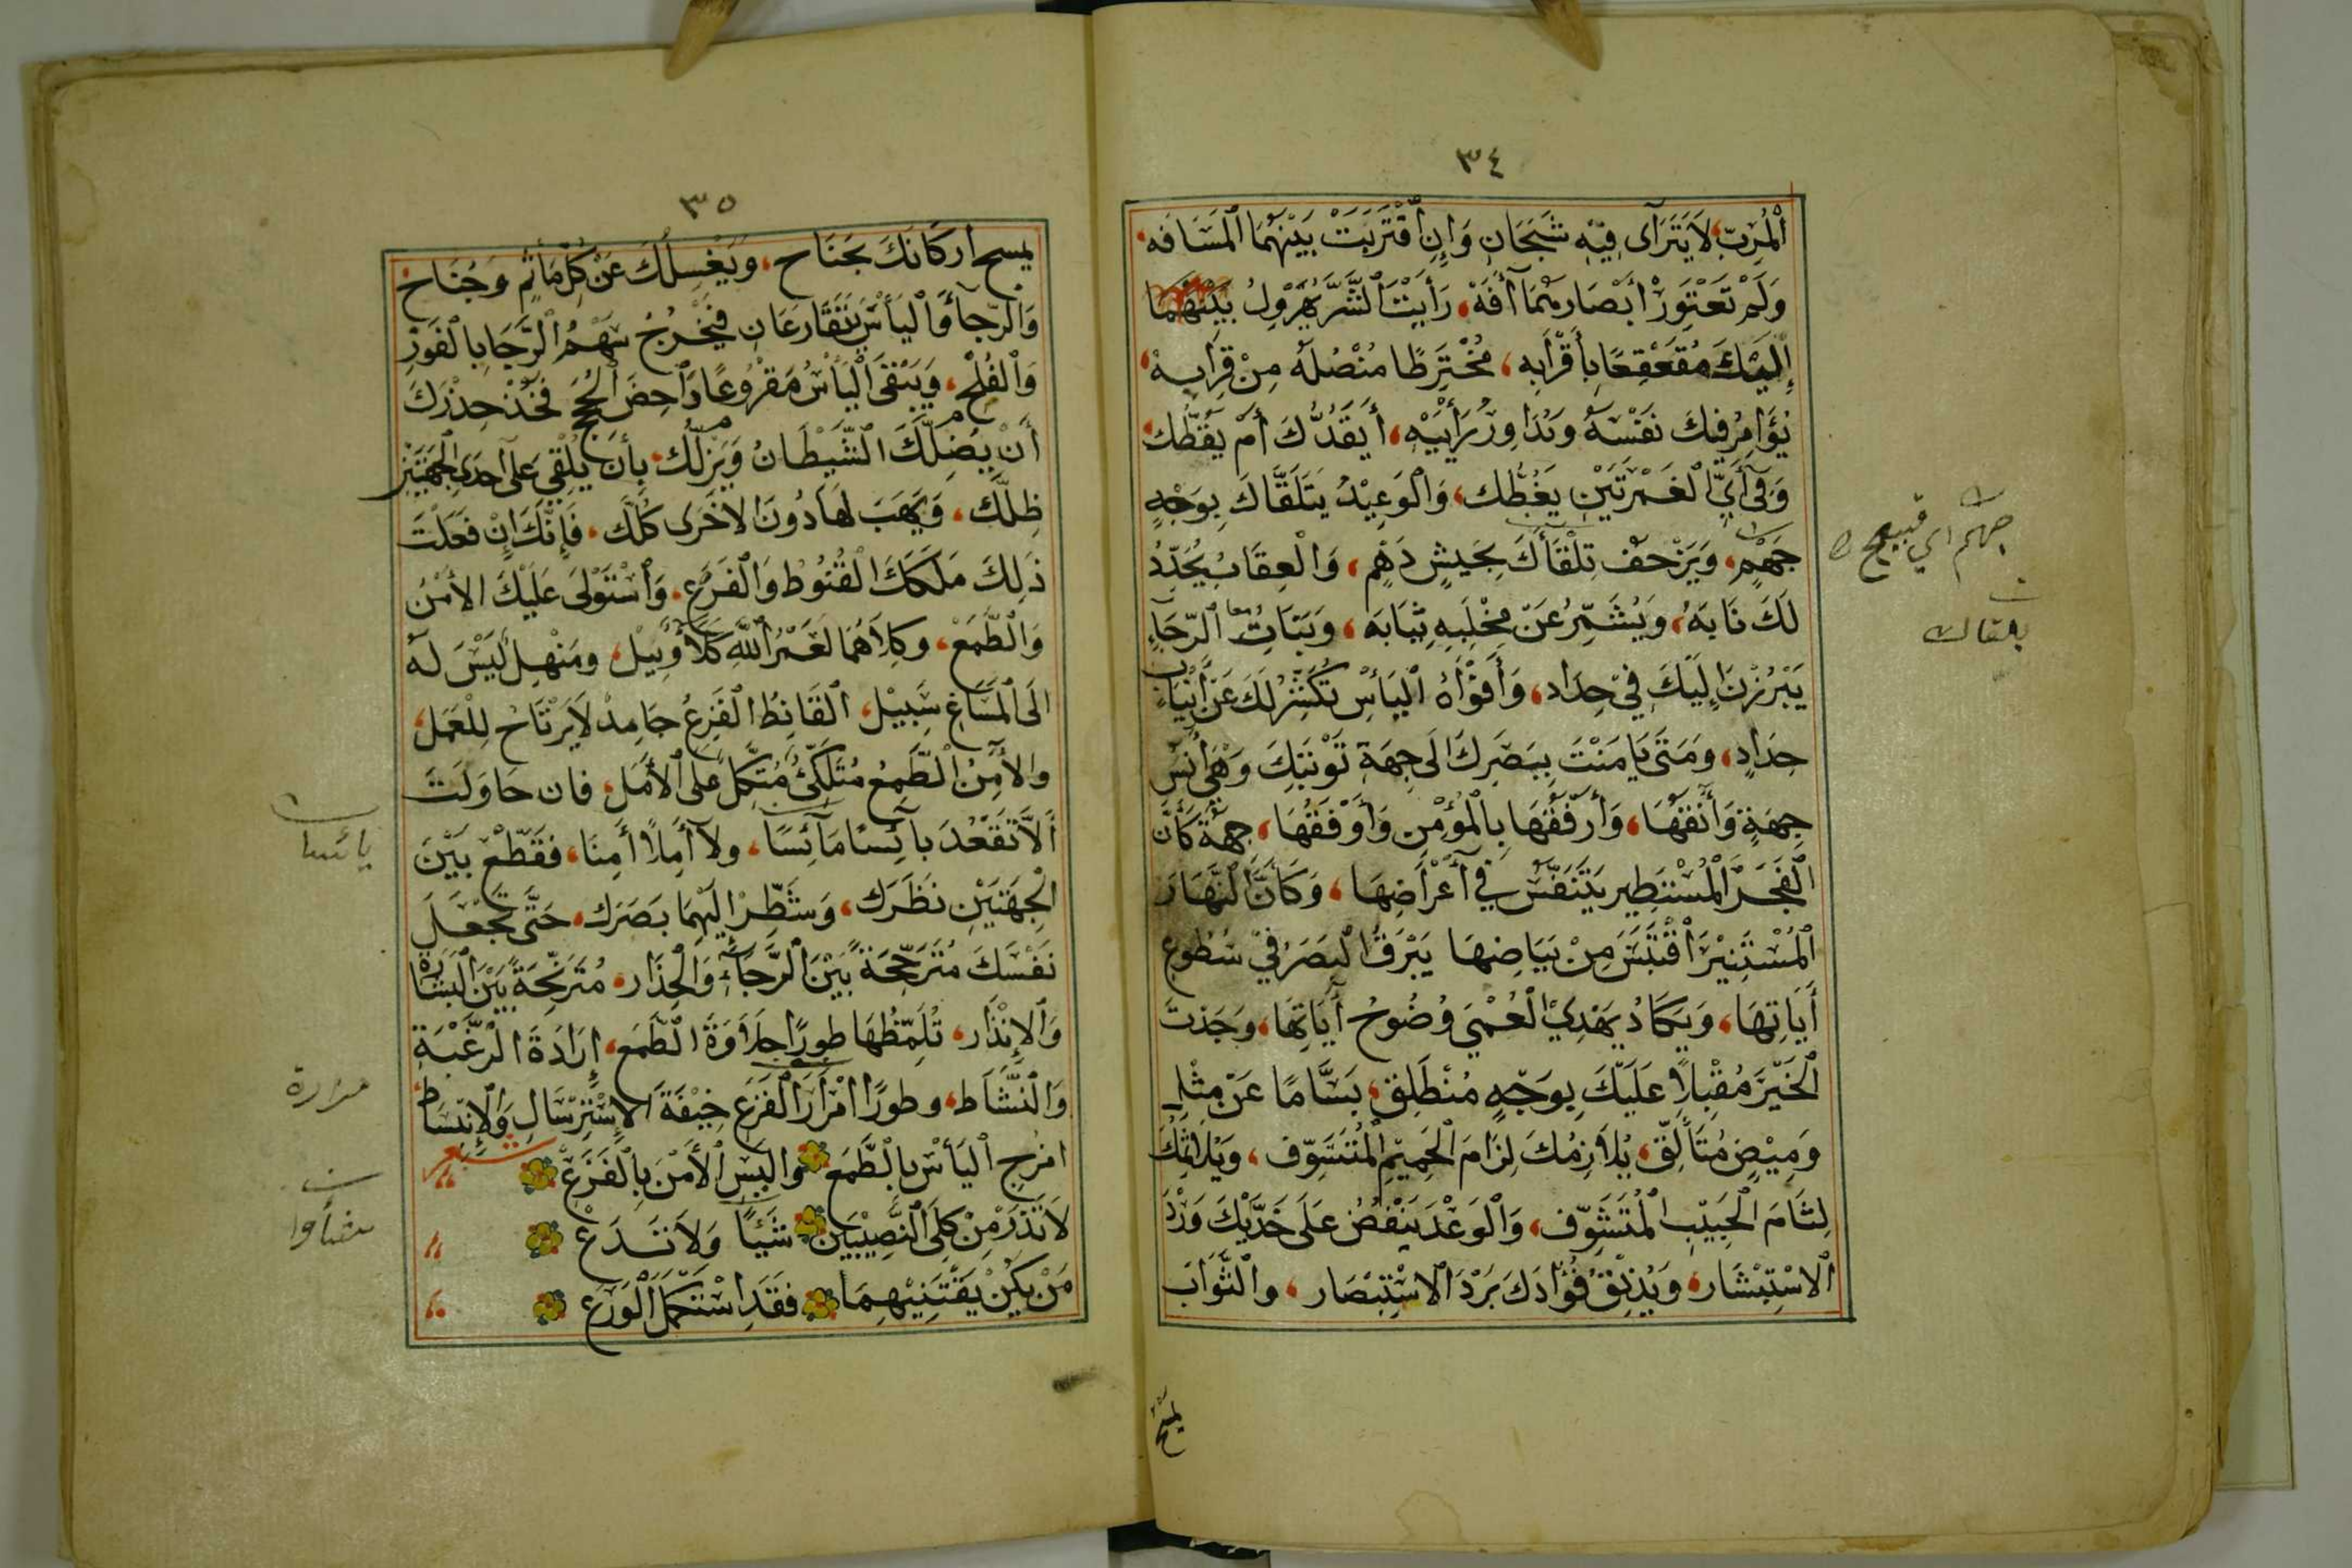 ٣٤
ٱلْمُرِبّ، لَا يَتَرَآى فِيْهِ شَبَحَانِ وَإِنِ ٱقْتَرَبَتْ بَيْنَهُمَا ٱلْمَسَافَه،
وَلَمْ تَعْتَوِرْ أَبْصَارَهُمَا آفَهْ، رَأَيْتَ ٱلشَّرَّ يُهَرْوِلُ بَيْنَهُمَا
إِلَيْكَ مُقَعْقِعًا بِأَقْرَابِه، مُخْتَرِطًا مُنْصُلَهُ مِنْ قِرَابِهْ،
يُؤَامِرُ فِيكَ نَفْسَهُ وَيُدَاوِرُ رَأْيَيْهِ، أَيَقُدُّكَ أَمْ يَقُطُّك،
وَفِي أَيِّ ٱلْغَمْرَتَيْنِ يَغُطُّك، وَٱلْوَعِيْدُ يَتَلَقَّاكَ بِوَجْهٍ
جَهْمٍ، وَيَزْحَفُ تِلْقَآكَ بِجَيْشٍ دَهْمٍ، وَالْعِقَابُ يُحَدِّدُ
لَكَ نَابَهُ، وَيُشَمِّرُ عَنْ مِخْلَبِهِ ثِيَابَه، وَبَنَاتُ ٱلرَّجَاءِ
يَبْرُزْنَ إِلَيْكَ فِيْ حِدَاد، وَأَفْوَاهُ ٱلْيَأْسِ تُكَشِّرُ لَكَ عَنْ أَنْيَابٍ
حِدَادٍ، وَمَتَى يَامَنْتَ بِبَصَرِكَ إِلَى جِهَةِ تَوْبَتِكَ وَهْيَ أَنَسُ
جِهَةٍ وَآنَقُهَا، وَأَرْفَقُهَا بِالْمُؤْمِنِ وَأَوْفَقُهَا، جِهَةٌ كَأَنَّ
ٱلْفَجْرَ ٱلْمُسْتَطِيرَ يَتَنَفَّسُ فِي أَعْرَاضِهَا، وَكَأَنَّ ٱلنَّهَارَ
ٱلْمُسْتَنِيْرَ ٱقْتَبَسَ مِنْ بَيَاضِهَا يَبْرَقُ ٱلْبَصَرُ فِيْ سُطُوعِ
أَيَاتِهَا، وَيَكَادُ يَهْدِيْ ٱلْعُمْيَ وُضُوحُ آيَاتِهَا، وَجَدْتَ
ٱلْخَيْرَ مُقْبِلًا عَلَيْكَ بِوَجْهٍ مُنْطَلِقٍ، بَسَّامًا عَنْ مِثْلِ
وَمِيْضٍ مُتَأَلِّقٍ، يُلَازِمُكَ لِزَامَ ٱلْحَمِيْمِ ٱلْمُتَسَوِّف، وَيُلَاثِمُكَ
لِثَامَ ٱلْحَبِيْبِ ٱلْمُتَشَوِّف، وَٱلْوَعْدَ يَنْفُضُ عَلَى خَدَّيْكَ وَرْدَ
ٱلْاِسْتِبْشَار، وَيُذِيْقُ فُؤَادَكَ بَرْدَ الْاِسْتِبْصَار، والثَّوَابَ
جهم اي قبيح
بلتقاك
يمسح
٣٥
يمسح أركَانَكَ بجَنَاح، وَيَغْسِلُكَ عَنْ كُلِّ مَأْثَمٍ وَجُنَاح
وَالرَّجَآءَ وَٱلْيَأْسَ يَتَقَارَعَانِ فَيَخْرُجُ سَهْمُ ٱلرَّجَا بِالْفَوْزِ
وَٱلْفُلْجِ، وَيَبْقَى ٱلْيَأْسُ مَقْرُوعًا دَاحِضَ ٱلْحُجَج فَخُذْ حِذْرَكَ
أَنْ يُضِلَّكَ الشَّيْطَانُ وَيَزِلُّك، بِأَنْ يُلْقِيَ عَلَى إحْدَى الْجِهَتَيْنِ
ظِلَّك، وَيَهَبَ لَهَا دُونَ الْاُخْرَى كُلَّك، فَإِنَّكَ إِنْ فَعَلْتَ
ذَلِكَ مَلَكَكَ الْقُنُوطُ وَالْفَزَعُ، وَٱسْتَوْلَى عَلَيْكَ الأَمْنُ
وَالطَّمَعْ، وَكِلَاهُمَا لَعَمْرُ ٱللَّهِ كَلَأٌ وَبِيْل، ومَنْهلٌ لَيْسَ لَهُ
الَى ٱلْمَسَاغِ سَبِيْل، ٱلْقَانِطُ ٱلْفَزِعُ جَامِدٌ لَا يَرْتَاحُ لِلْعَمَل،
وَالْآمِنُ الطَّمِعُ مُتَّكِئٌ مُتَّكِلٌ عَلَى ٱلْأَمَل، فان حَاوَلْتَ
أَلَّا تَقْعُدَ بَآئِسًا مَآئِسًا، ولا آمِلًا أَمِنًا، فَقَطِّعْ بَيْنَ
ٱلْجِهَتَيْنِ نَظَرَك، وَشَطِّرْ إِلَيْهِمَا بَصَرَك، حَتَّى تَجْعَلَ
نَفْسَكَ مُتَرَجِّحَةً بَيْنَ ٱلرَّجَآءِ وَٱلْحِذَار، مُتَرَنِّحَةً بَيْنَ ٱلْبِشَارَةِ
وَٱلْإِنْذَار، تُلَمِّظُهَا طورًا حَلَاوَةَ الطَّمَع، إِرَادَةَ الرَّغْبَةِ
وَالنَّشَاط، وطورًا امْرَارَ ٱلْفَزَعِ خِيْفَةَ الْإِسْتِرْسَالِ وَٱلْإِنْبِسَاط،
شعر
امزج ٱلْيَأْسَ بِالطَّمَعِ والبس ٱلْأَمْنَ بِٱلْفَزَعْ
لَا تَذَرْ مِنْ كِلَى ٱلنَّصِيْبَيْنِ شَيْئًا وَلَا تَدَعْ
مَنْ يَكُنْ يَقْتَنِيْهِمَا فَقَدِ اسْتَكْمَلَ ٱلْوَرَعْ
يائسا
مرارة